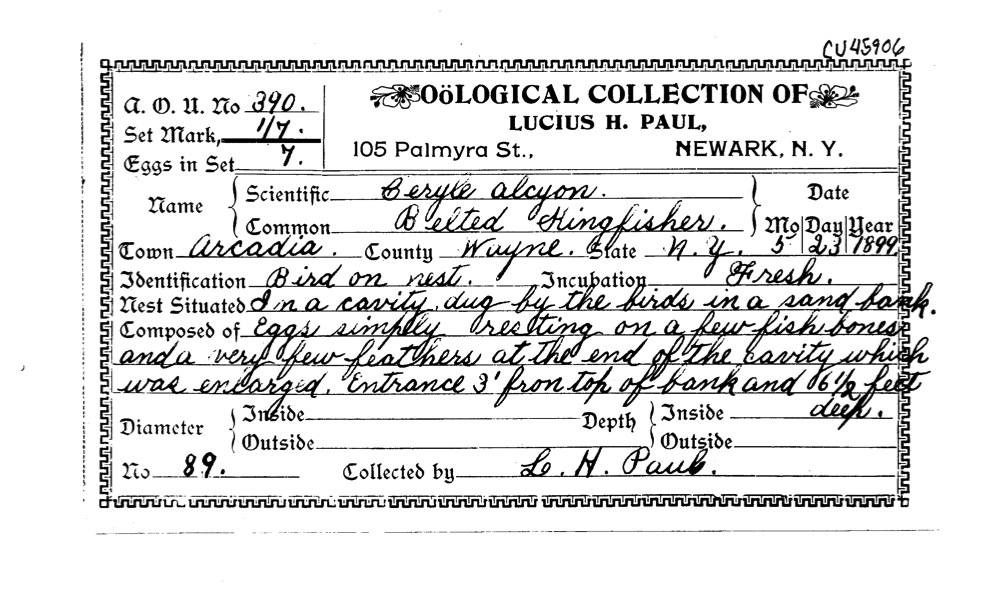 CU45906
A. O. U. No 390.
OöLOGICAL COLLECTION OF
Set Mark, 1/7.
LUCIUS H. PAUL,
Eggs in Set 7.
105 Palmyra St., NEWARK, N. Y.
Name Scientific Ceryle alcyon. Date
Common Belted Kingfisher. Mo Day Year
Town Arcadia. County Wayne. State N. Y. 5 23 1899
Identification Bird on nest. Incubation Fresh.
Nest Situated In a cavity dug by the birds in a sand bank.
Composed of Eggs simply resting on a few fish bones
and a very few feathers at the end of the cavity which
was enlarged. Entrance 3' from top of bank and 6 1/2 feet
deep.
Diameter Inside Depth Inside
Outside Outside
No 89. Collected by L. H. Paul.